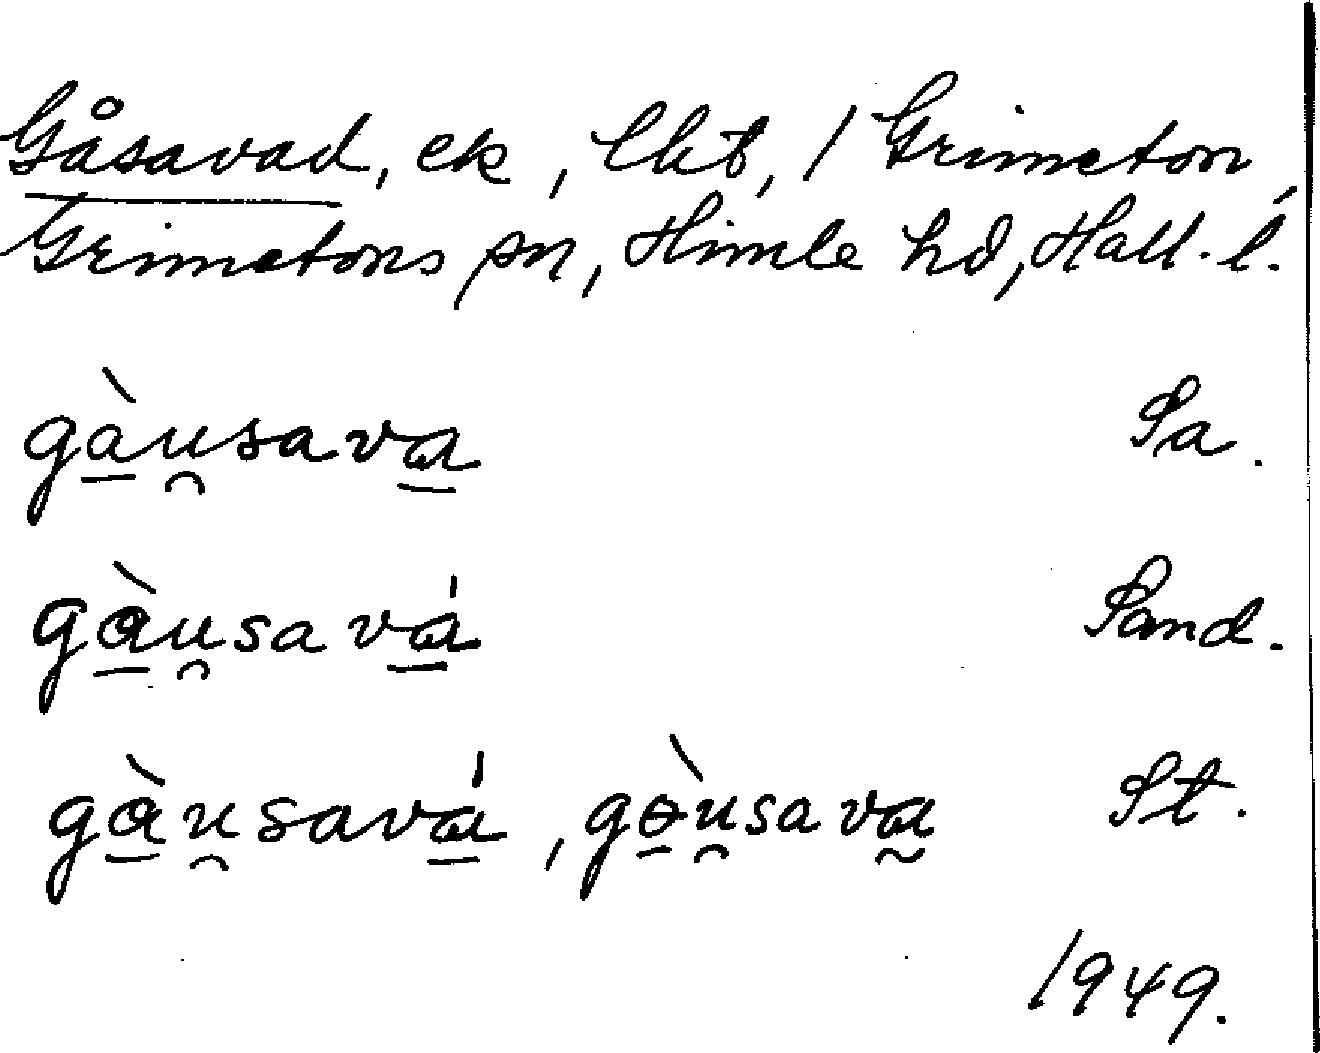 Gåsavad, ek, lht, / Grimeton,
Grimetons sn, Himle hd, Hall. l.
gàu̯sava̱ Sa.
gàu̯savá̱ Sand.
gàu̯savá̱, gɵ̱̀u̯sava̰ St.
1949.